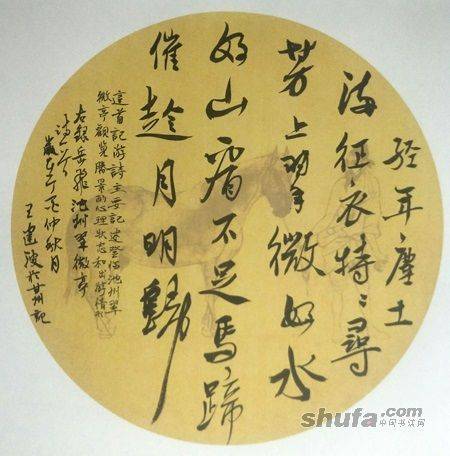 經年塵土
滿征衣特〻尋
芳上翠微好水
好山看不足馬蹄
催趁月明歸
這首記游詩主要記述登临池州翠
微亭觀覽勝景的心理狀态和出游情形
右録岳飛池州翠微亭
詩一首
歲在仲秋月
王建於甘州記
shufa.com
中国书法网